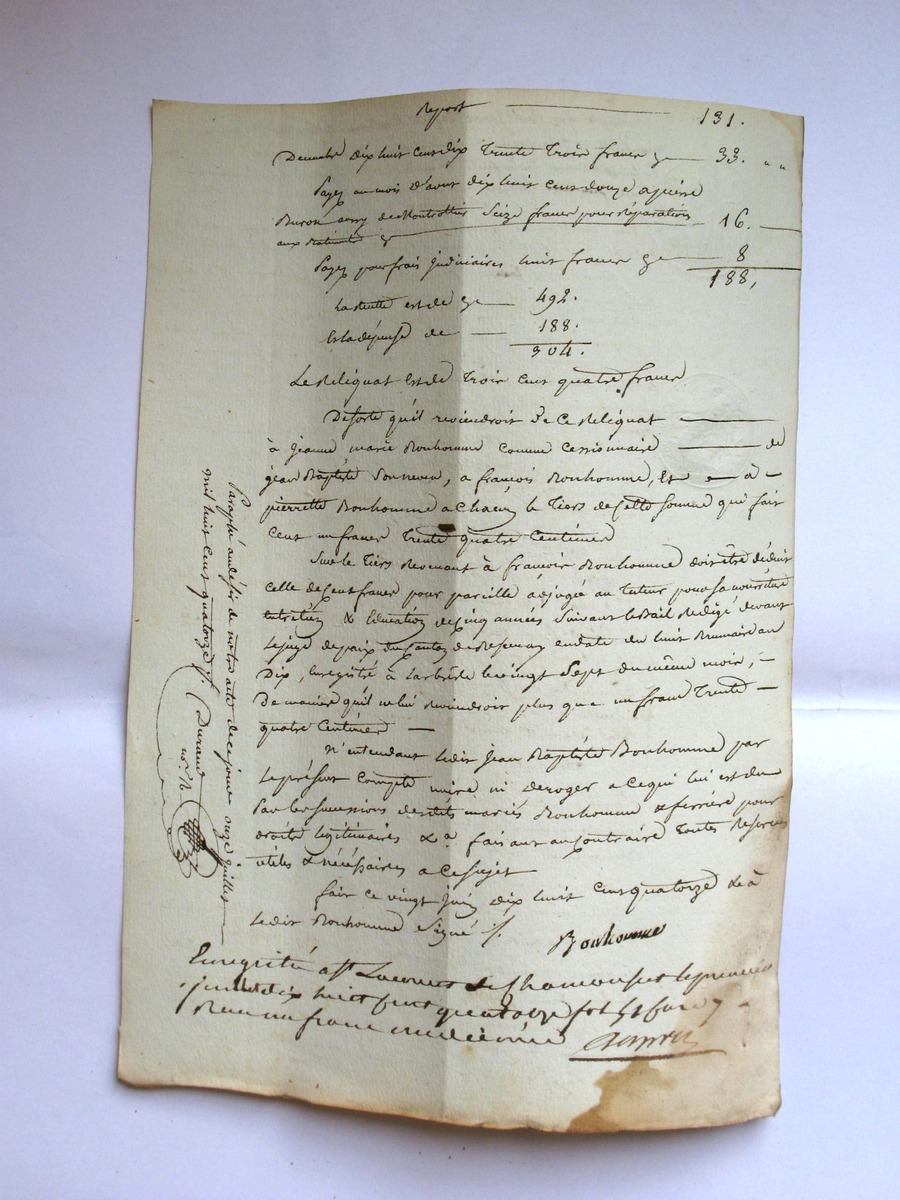 Report 131.
Decembre dix huit cent dix trente trois francs cy 33. " "
Payez au mois d'aout dix huit cent douze a pierre
Buron de Montrottier Seize francs pour réparations
aux Batiments cy 16.
Payez pour frais judiciaires huit francs cy 8
188,
La recette est de cy 492.
Et la dépense de 188.
304.
Le Reliquat est de trois cens quatre francs
De sorte qu'il reviendroit De ce Reliquat
à jeanne marie Bonhomme comme cessionnaire de
jean Baptiste, a françois Bonhomme, et à
pierrette Bonhomme a chacun le tiers de cette somme qui fait
Cent un francs trente quatre Centimes
Sur le tiers Revenant à françois Bonhomme doit être déduit
celle de Cent francs pour pareille adjugée au tuteur pour sa nourriture
entretien & Education de cinq années Suivant le bail Redigé devant
le juge de paix du Canton de en date du huit Brumaire an
Dix, enregistré à larbresle le vingt Sept du même mois,
De maniere qu'il ne lui reviendroit plus que un franc trente
quatre Centimes
n'entendant ledit Jean Baptiste Bonhomme par
le présent compte nuire ni deroger a ce qui lui est du
par les successions desdits mariés Bonhomme & ferriere pour
droits légitimaires &a faisant au contraire toutes Reserves
utiles & nécessaires a ce sujet
fait ce vingt juin dix huit cent quatorze & a
ledit Bonhomme Signé
Bonhomme
Enregistré a St Laurent de Chamousset le premier
juillet dix huit cent quatorze fol 51
Reçu un franc dix centimes
Paraphé au désir de notre acte de cejour onze juillet
mil huit cent quatorze
Durand